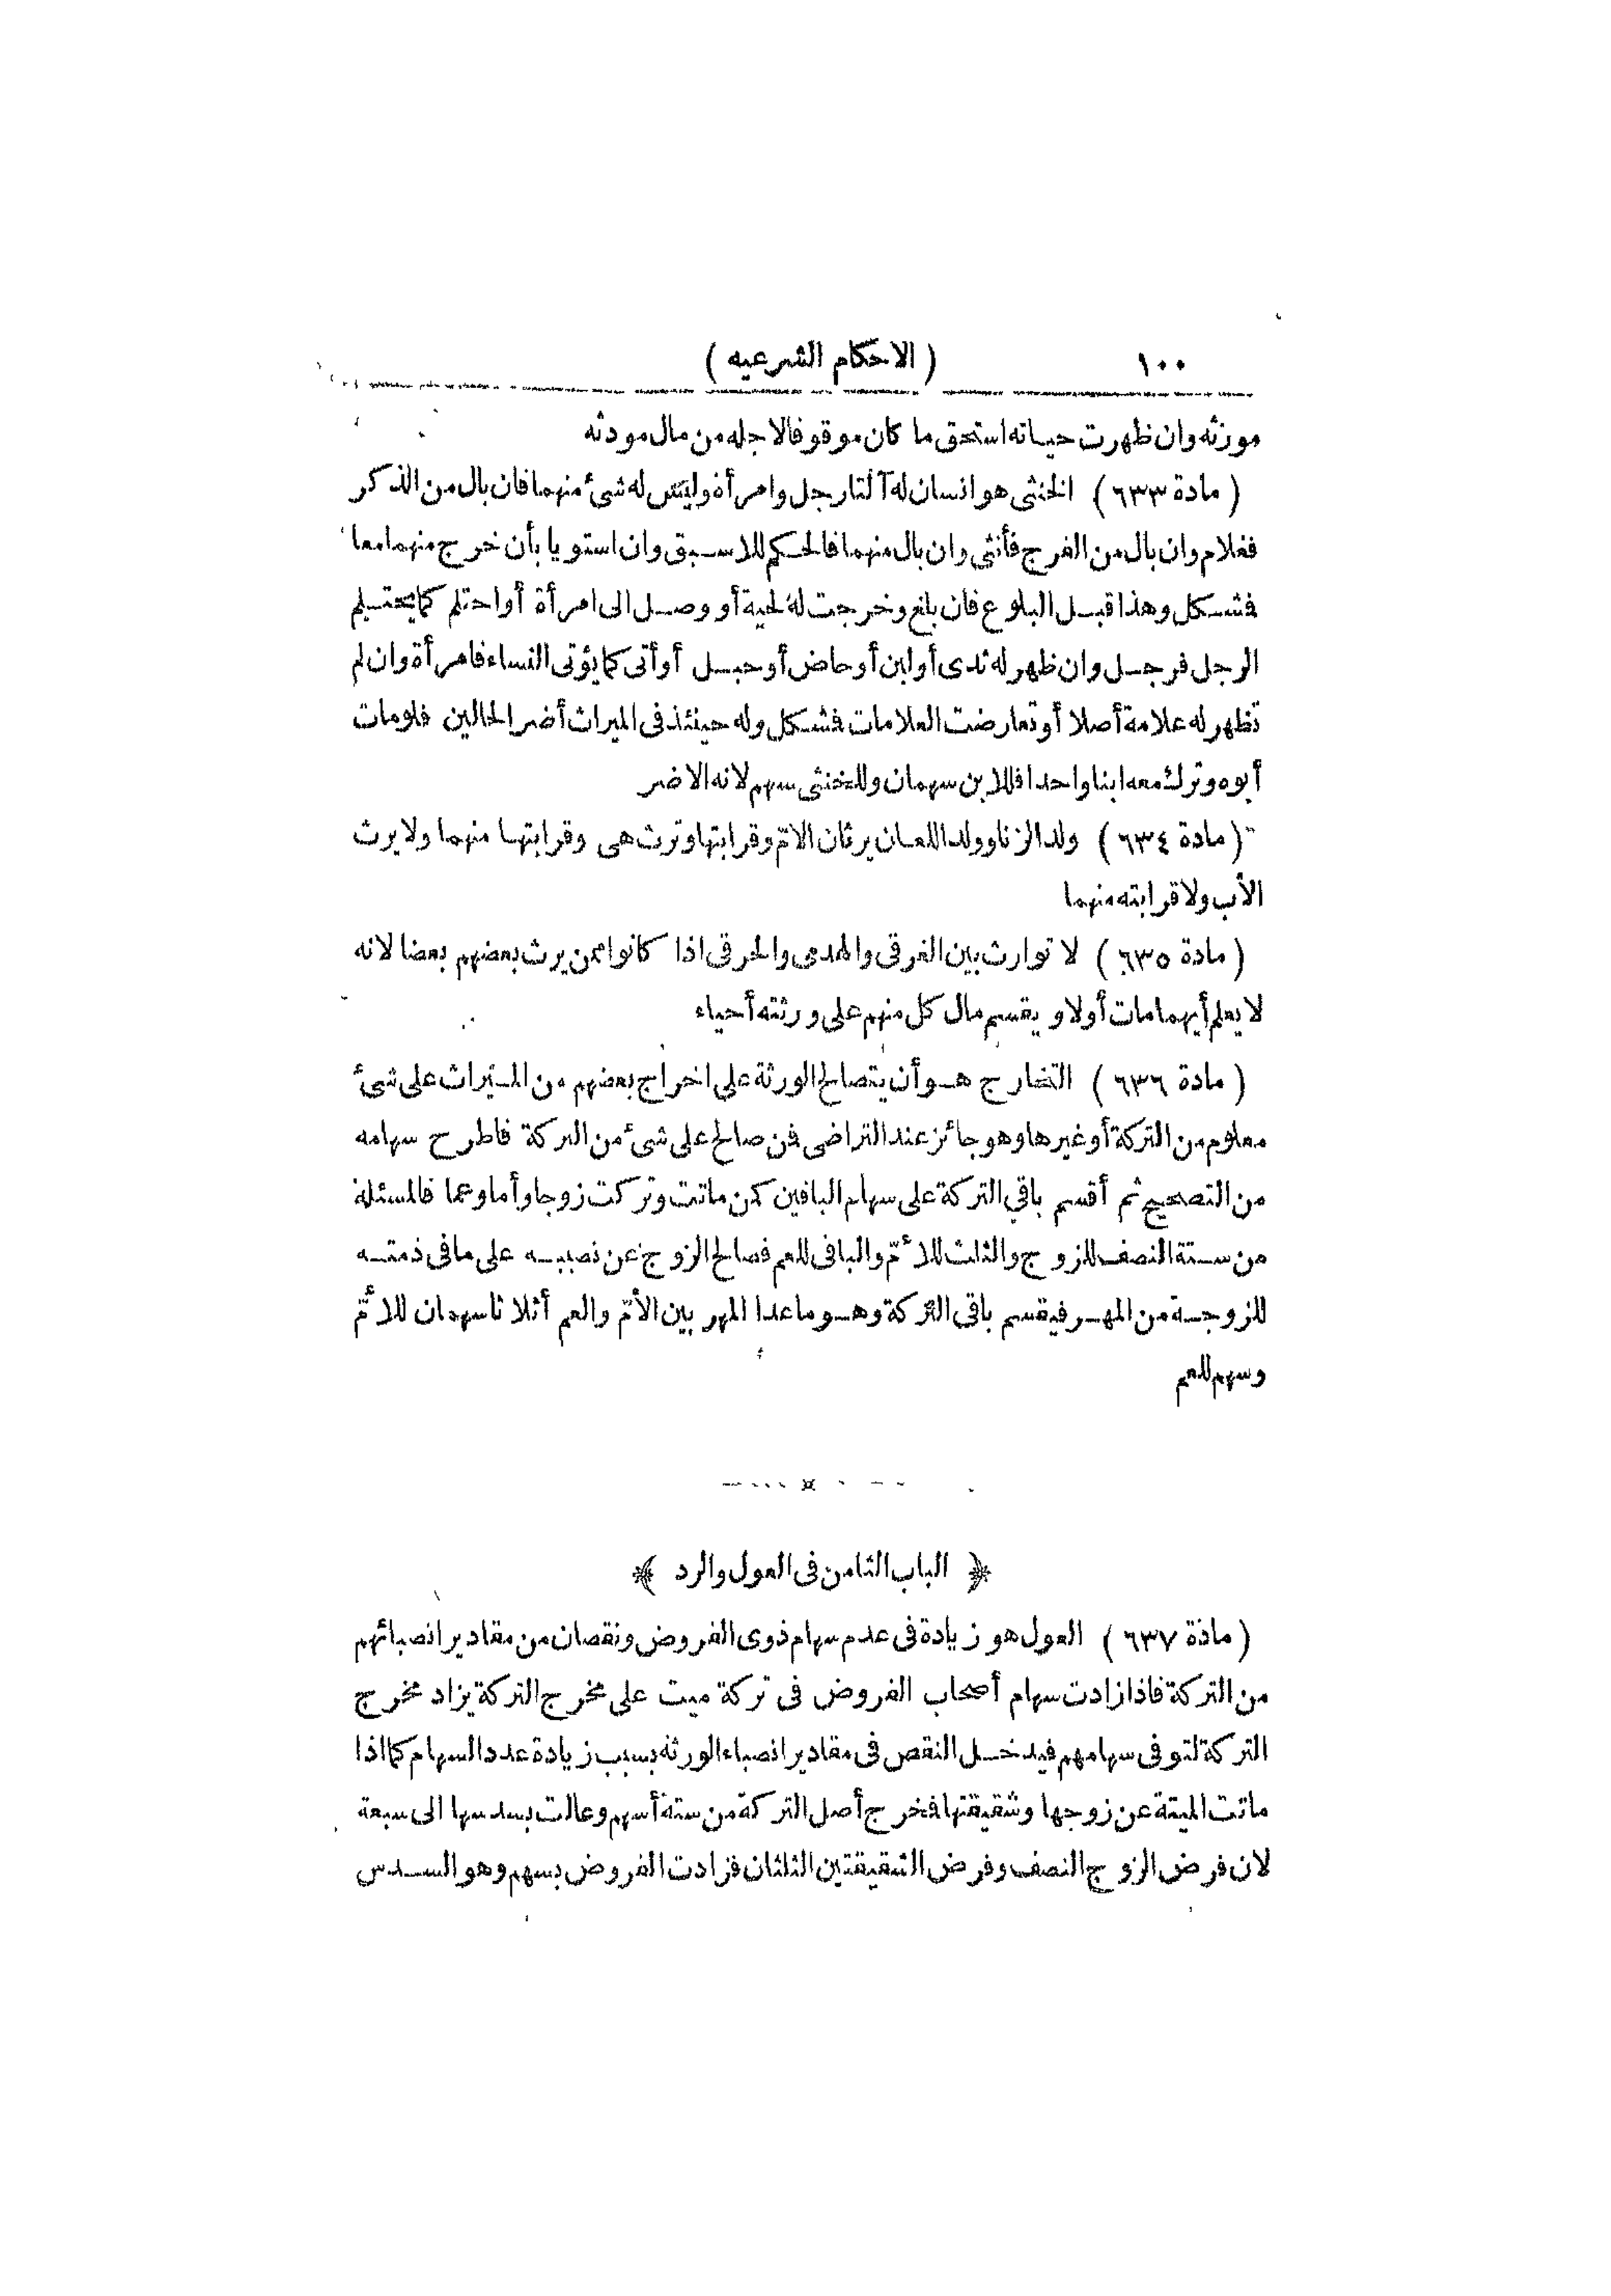 ١٠٠ ( الاحكام الشرعيه )
مورثه وان ظهرت حياته استحق ما كان موقوفا لاجله من مال مورثه
( مادة ٦٣٣ ) الخنثى هو انسان له آلتا رجل وامرأة وليس له شئ منهما فان بال من الذكر
فغلام وان بال من الفرج فأنثى وان بال منهما فالحكم للاسبق وان استويا بأن خرج منهما معا
فشكل وهذا قبل البلوغ فان بلغ وخرجت له لحية أو وصل الى امرأة أو احتلم كما يحتلم
الرجل فرجل وان ظهر له ثدى أو لبن أو حاض أو حبل أو أتى كما يؤتى النساء فامرأة وان لم
تظهر له علامة أصلا أو تعارضت العلامات فشكل وله حينئذ فى الميراث أضر الحالين فلو مات
أبوه وترك معه ابنا واحدا فللابن سهمان وللخنثى سهم لانه الاضر
( مادة ٦٣٤ ) ولد الزنا وولد اللعان يرثان الامّ وقرابتها وترث هى وقرابتها منهما ولا يرث
الأب ولا قرابته منهما
( مادة ٦٣٥ ) لا توارث بين الغرقى والهدمى والحرقى اذا كانوا ممن يرث بعضهم بعضا لانه
لا يعلم أيهما مات أولا ويقسم مال كل منهم على ورثته أحياء
( مادة ٦٣٦ ) التخارج هو أن يتصالح الورثة على اخراج بعضهم من الميراث على شئ
معلوم من التركة أو غيرها وهو جائز عند التراضى فمن صالح على شئ من التركة فاطرح سهامه
من التصحيح ثم أقسم باقي التركة على سهام الباقين كمن ماتت وتركت زوجا وأما وعما فالمسئلة
من ستة النصف للزوج والثلث للأمّ والباقى للعم فصالح الزوج عن نصيبه على ما فى ذمته
للزوجة من المهر فيقسم باقى التركة وهو ما عدا المهر بين الأمّ والعم أثلاثا سهمان للأمّ
وسهم للعم
﴿ الباب الثامن فى العول والرد ﴾
( مادة ٦٣٧ ) العول هو زيادة فى عدم سهام ذوى الفروض ونقصان من مقادير انصبائهم
من التركة فاذا زادت سهام أصحاب الفروض فى تركة ميت على مخرج التركة يزاد مخرج
التركة لتوفى سهامهم فيدخل النقص فى مقادير انصباء الورثه بسبب زيادة عدد السهام كما اذا
ماتت الميتة عن زوجها وشقيقتها فخرج أصل التركة من ستة أسهم وعالت بسدسها الى سبعة
لان فرض الزوج النصف وفرض الشقيقتين الثلثان فزادت الفروض بسهم وهو السدس